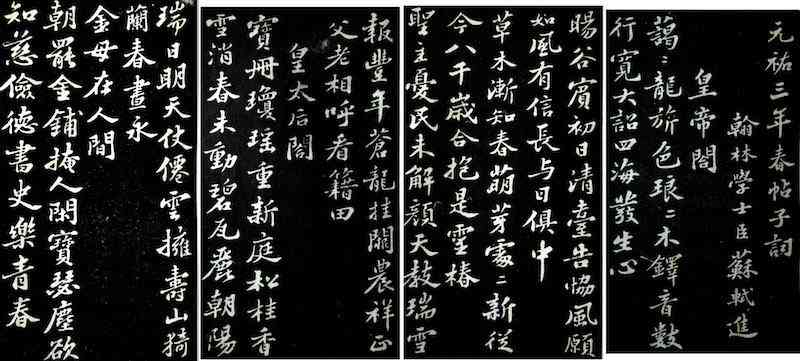 元祐三年春帖子詞
翰林學士臣蘇軾進
皇帝閤
藹〻龍旂色琅〻木鐸音數
行寬大詔四海發生心
暘谷賓初日清臺告協風願
如風有信長与日俱中
草木漸知春萌芽處〻新従
今八千歲合抱是靈椿
聖主憂民未解顏天教瑞雪
報豐年蒼龍挂闕農祥正
父老相呼看籍田
皇太后閤
寶冊瓊瑤重新庭松桂香
雪消春未動碧瓦麗朝陽
瑞日明天仗僊雲擁壽山猗
蘭春晝永
金母在人間
朝罷金鋪掩人閑寶瑟塵欲
知慈儉德書史樂青春